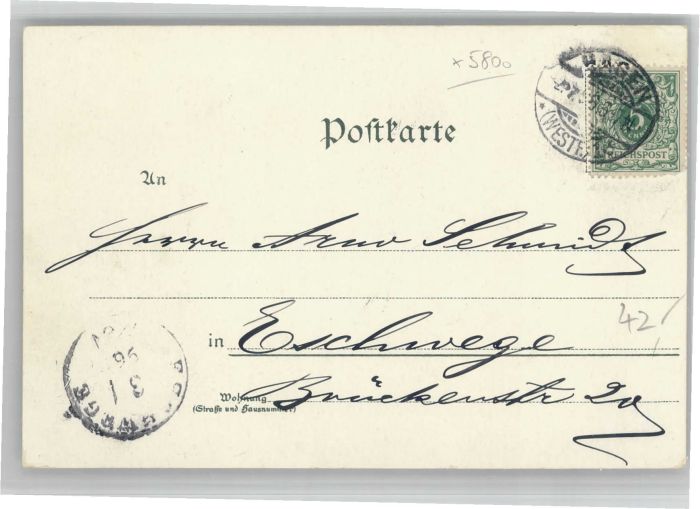 x 5800
HAGEN
(WESTF.)
5
REICHSPOST
Postkarte
An
Herrn Arno Schmidt
42
in Eschwege
Wohnung
(Straße und Hausnummer)
Brückenstr 20
ESCHWEGE
3 1
96